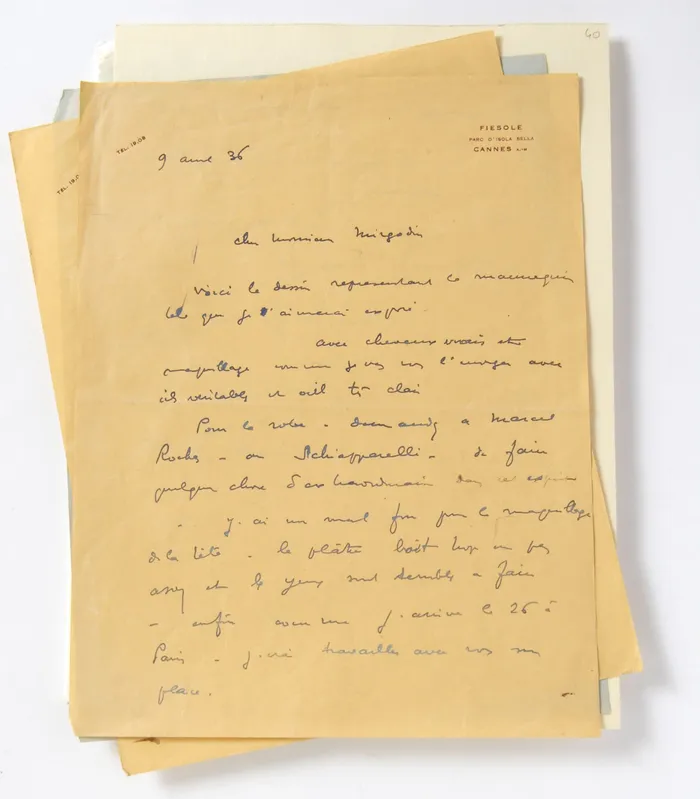 60
FIESOLE
PARC D'ISOLA BELLA
CANNES A.-M
TEL: 19.08
TEL: 19.0
9 avril 36
cher monsieur
Voici le dessin representant le mannequin
tel que je l'aimerai exposé.
avec cheveux vrais et
maquillage comme je vous l'envoie avec
cils veritables et œil très clair
Pour la robe - demandez a Marcel
Rochas - ou Schiapparelli - de faire
quelque chose d'extraordinaire dans cet
- j'ai un mal fou pour le maquillage
de la tête - le plâtre boit trop ou pas
assez et les yeux sont terribles a faire
- enfin comme j'arrive le 26 à
Paris - j'irai travailler avec vous sur
place.